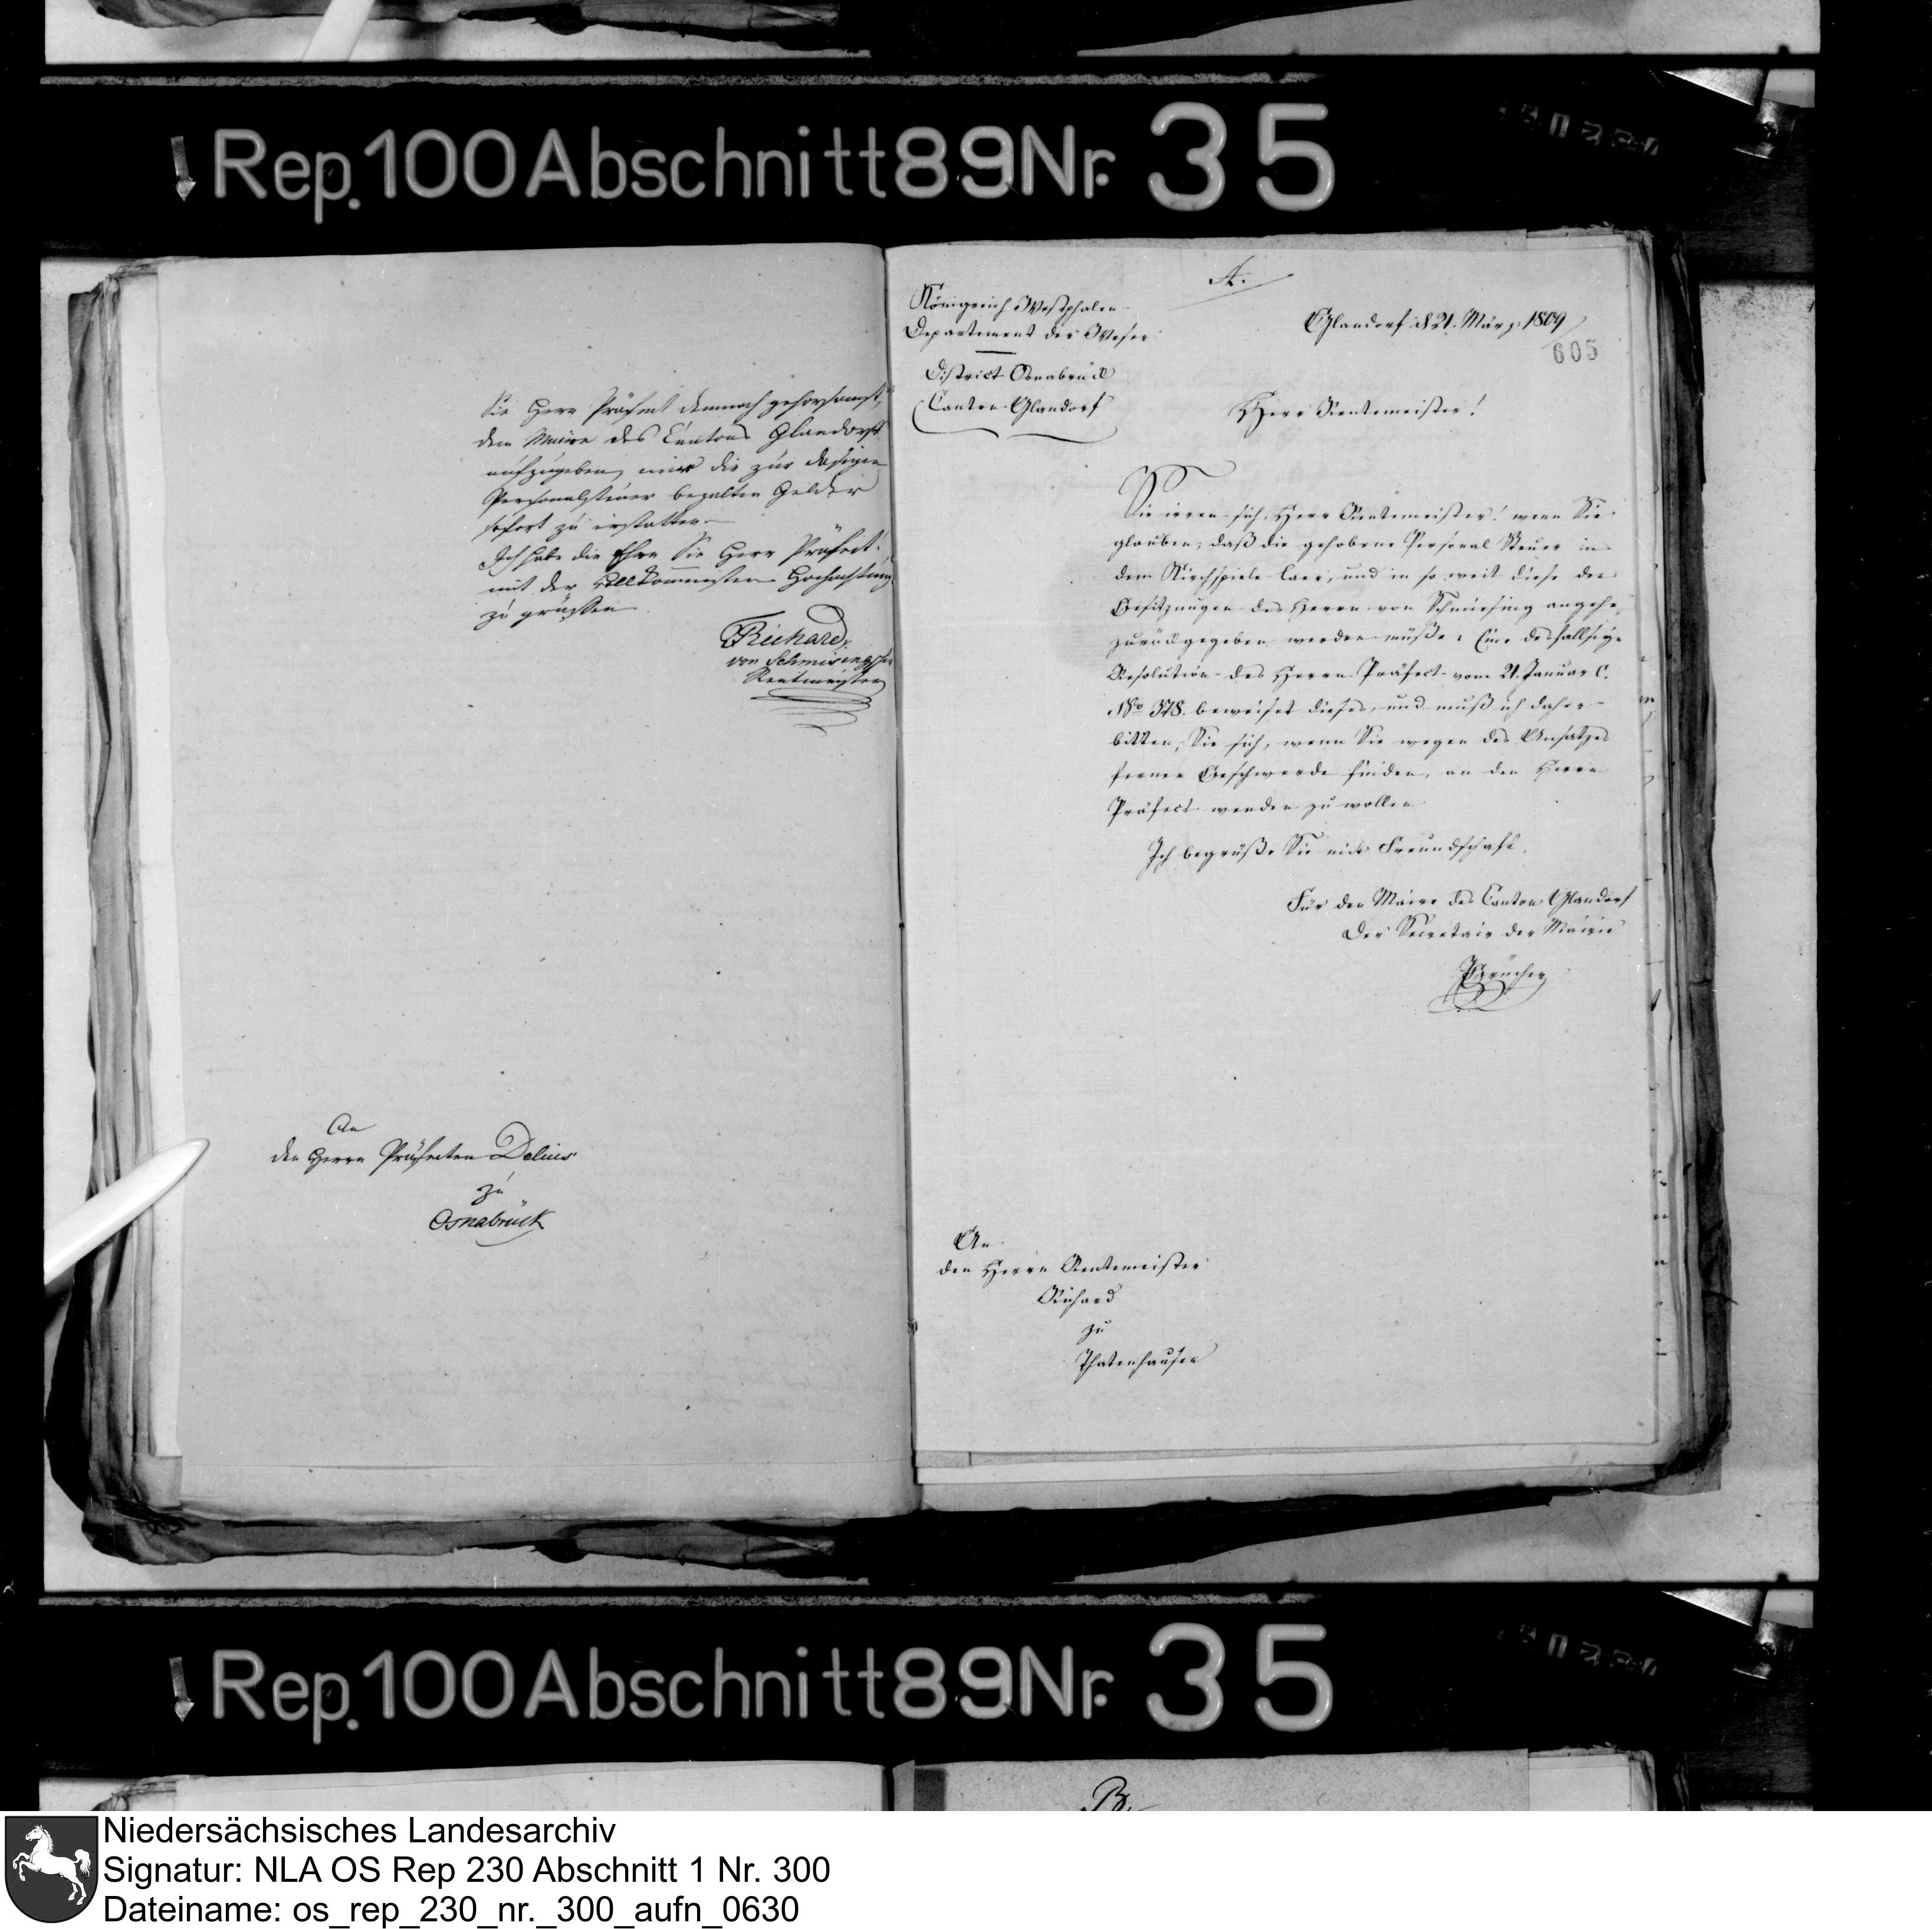 Rep. 100 Abschnitt 89 Nr. 35
Sie Herr Präfect demnach gehorsamst,
dem Maire des Cantons Glandorf
aufzugeben, mir die zur dasigen
Personalsteuer bezalten Gelder
sofort zu erstatten
Ich habe die Ehre Sie Herr Präfect!
mit der vollkommensten Hochachtung
zu grüßen
Richard,
von Schmisingscher
Rentmeister
An
den Herrn Präfecten Delius
zu
Osnabrück
A.
Königreich Westphalen
Departement der Weser
District Osnabrück
Canton Glandorf
Glandorf d 21. März 1809
605
Herr Rentemeister!
Sie irren sich, Herr Rentemeister! wenn Sie
glauben, daß die gehobene Personal Steuer in
dem Kirchspiele Laer, und in so weit diese die
Besitzungen des Herrn von Schmiesing angehe,
zurückgegeben werden müße; Eine desfallsige
Resolution des Herrn Präfect vom 21. Januar C.
No 378. beweiset dieses, und muß ich daher
bitten, Sie sich, wenn Sie wegen des Ansatzes
ferner Beschwerde finden, an den Herrn
Präfect wenden zu wollen
Ich begrüße Sie mit Freundschaft.
Für den Maire des Canton Glandorf
Der Secretair der Mairie
An
den Herrn Rentemeister
Richard
zu
Thatenhausen
Rep. 100 Abschnitt 89 Nr. 35
B.
Niedersächsisches Landesarchiv
Signatur: NLA OS Rep 230 Abschnitt 1 Nr. 300
Dateiname: os_rep_230_nr._300_aufn_0630